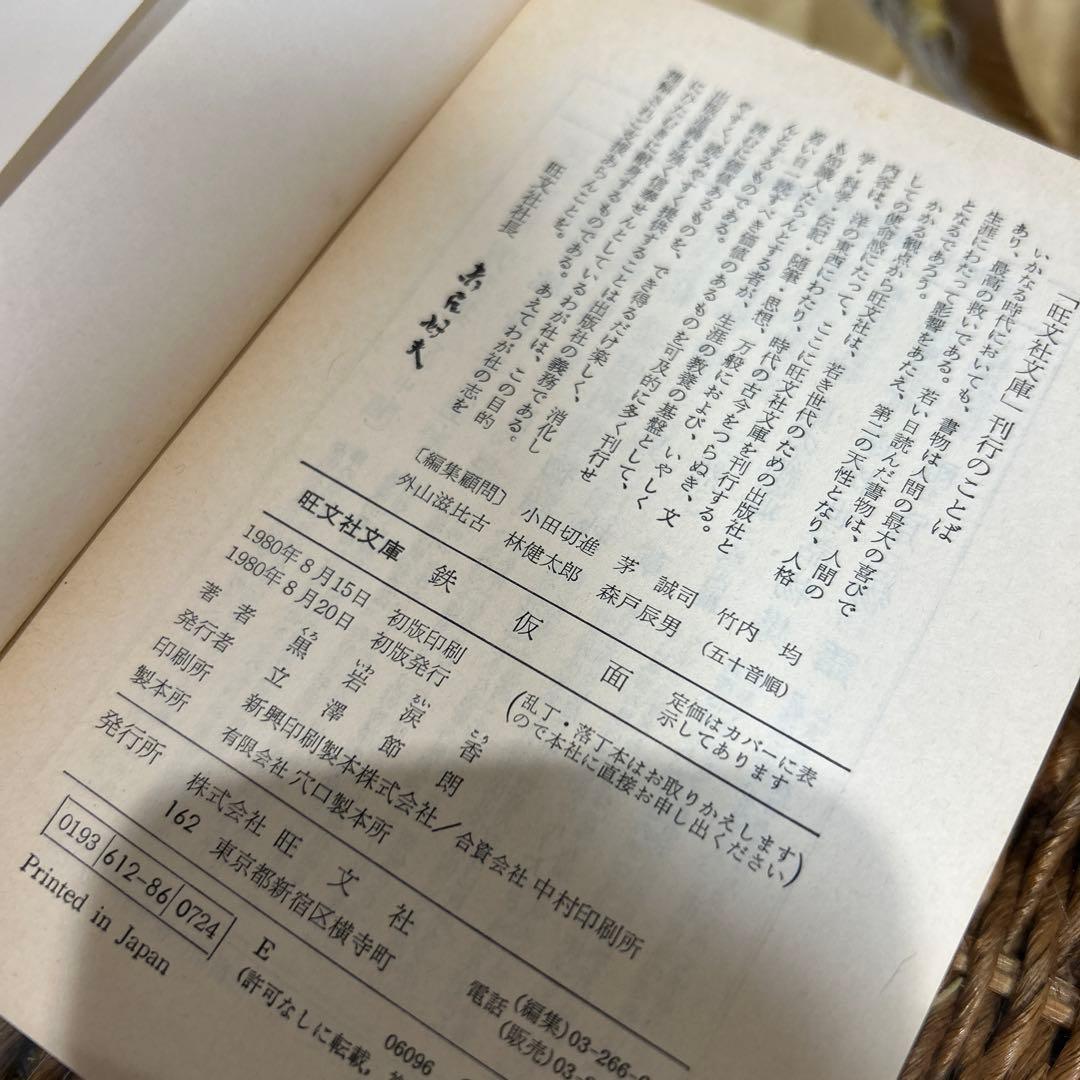 「旺文社文庫」刊行のことば
いかなる時代においても、書物は人間の最大の喜びで
あり、最高の救いである。若い日読んだ書物は、人間の
生涯にわたって影響をあたえ、第二の天性となり、人格
となるであろう。
かかる観点から旺文社は、若き世代のための出版社と
しての使命感にたって、ここに旺文社文庫を刊行する。
内容は、洋の東西にわたり、時代の古今をつらぬき、文
学・科学・伝記・随筆・思想、万般におよび、いやしく
も知識人たらんとする者が、生涯の教養の基盤として、
若い日一読すべき価値のあるものを可及的に多く刊行せ
んとするものである。
読むに価値あるものを、でき得るだけ楽しく、消化し
やすく、読みやすく提供することは出版社の義務である。
この目的
ものとしているわが社は、あえてわが社の志を
あらんことを。
旺文社社長
〔編集顧問〕 小田切進 茅 誠司 竹内 均
外山滋比古 林健太郎 森戸辰男 (五十音順)
旺文社文庫 鉄 仮 面 定価はカバーに表示してあります
1980年8月15日 初版印刷
1980年8月20日 初版発行
(乱丁・落丁本はお取りかえしますので本社に直接お申し出ください)
著 者 黒 岩 涙 香
くろ いわ るい こう
発行者 立 澤 節 朗
印刷所 新興印刷製本株式会社/合資会社 中村印刷所
製本所 有限会社 穴口製本所
発行所 株式会社 旺 文 社
162 東京都新宿区横寺町
電話 (編集)03-266-6
(販売)03-
0193 612-86 0724
E
06096
(許可なしに転載,
Printed in Japan